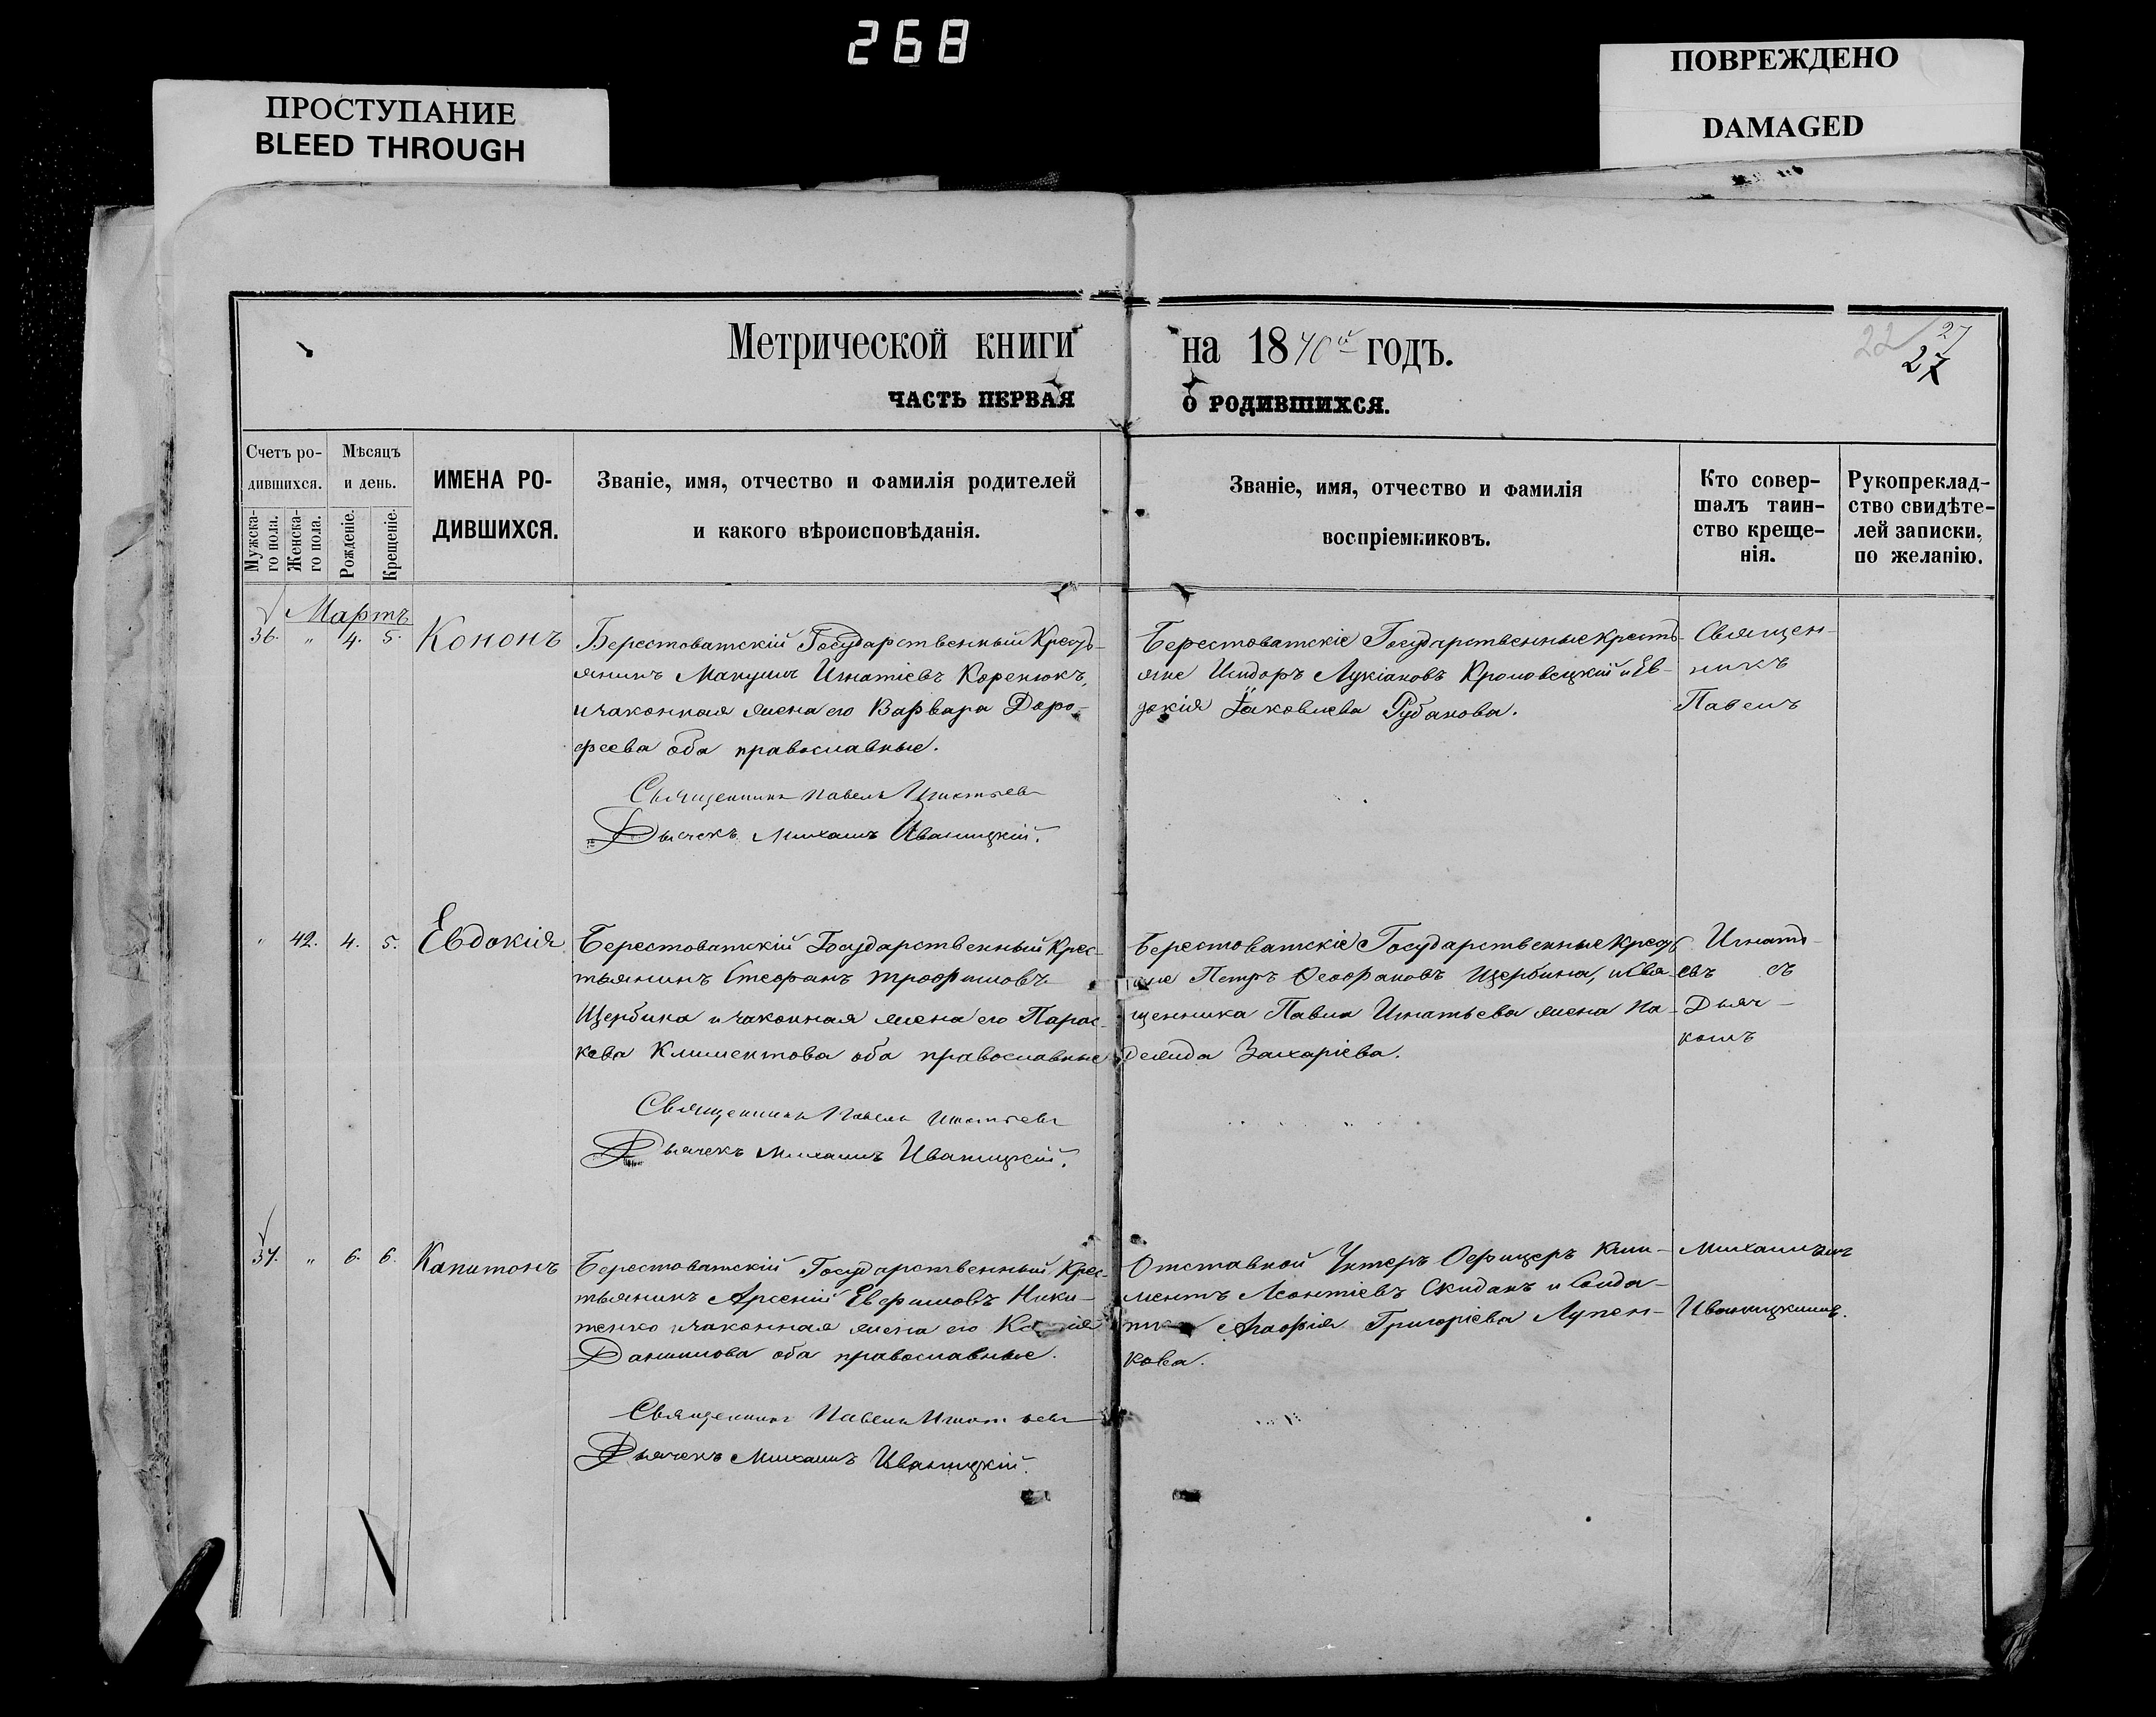 268
ПРОСТУПАНИЕ
BLEED THROUGH
ПОВРЕЖДЕНО
DAMAGED
Метрической книги на 1870й годъ.
22 27
27
ЧАСТЬ ПЕРВАЯ О РОДИВШИХСЯ.
Счетъ ро-
дившихся.
Мужеска-
го пола.
Женска-
го пола.
Мѣсяцъ
и день.
Рожденіе.
Крещеніе.
ИМЕНА РО-
ДИВШИХСЯ.
Званіе, имя, отчество и фамилія родителей
и какого вѣроисповѣданія.
Званіе, имя, отчество и фамилія
воспріемниковъ.
Кто совер-
шалъ таин-
ство креще-
нія.
Рукопреклад-
ство свидѣте-
лей записки,
по желанію.
Мартъ
36. " 4. 5. Кононъ
Берестоватскій Государственный Кресть-
янинъ Игнатіевъ Коренюкъ,
и законная жена его Варвара Доро-
феева оба православные.
Священникъ Павелъ Игнатьевъ
Дьячекъ Михаилъ Иваницкій.
Берестоватскіе Государственные Кресть-
яне Исидоръ Лукіановъ и Ев-
докія Іаковлева Рубанова.
Священ-
никъ
Павелъ
" 42. 4. 5. Евдокія
Берестоватскій Государственный Крес-
тьянинъ Стефанъ Трофимовъ
Щербина и законная жена его Парас-
кева Климентова оба православные
Священникъ Павелъ Игнатьевъ
Дьячекъ Михаилъ Иваницкій.
Берестоватскіе Государственные Кресть
яне Петръ Феофановъ Щербина, и Свя-
щенника Павла Игнатьева жена На-
дежда Захаріева.
Игнать-
евъ съ
Дьяч-
комъ
37. " 6. 6. Капитонъ
Берестоватскій Государственный Крес-
тьянинъ Арсеній Евфимовъ Ники-
тенко и законная жена его
Даниилова оба православные.
Священникъ Павелъ Игнатьевъ
Дьячекъ Михаилъ Иваницкій.
Отставной Унтеръ Офицеръ Кли-
ментъ Леонтіевъ Скиданъ и Солда-
Агафія Григоріева Лупен-
кова.
Михаиломъ
Иваницкимъ.